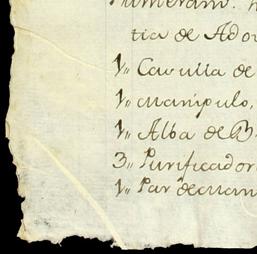 Primeram.
tia de Ador
1,, Casulla de
1,, manipulo,
1,, Alba de B
3,, Purificador
1,, Par de man